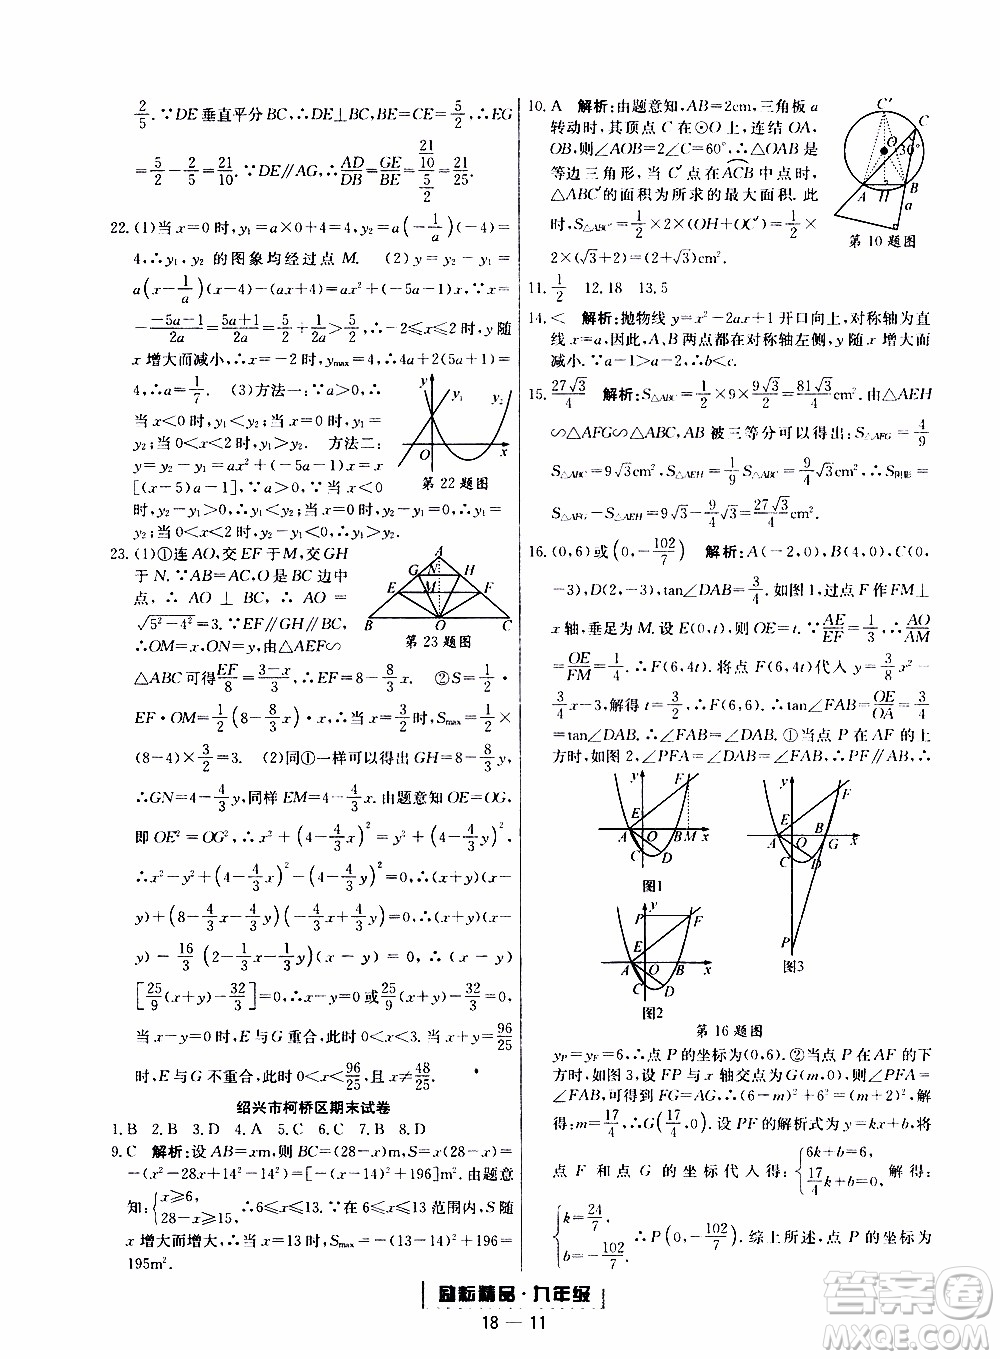 2/5.∵DE垂直平分BC,∴DE⊥BC,∴BE=CE=5/2,∴EG
=5/2-2/5=21/10.∵DE∥AG,∴AD/DB=GE/BE=(21/10)/(5/2)=21/25.
22.(1)当x=0时,y₁=a×0+4=4,y₂=a(-1/a)(-4)=
4,∴y₁,y₂的图象均经过点M. (2)y=y₂-y₁=
a(x-1/a)(x-4)-(ax+4)=ax²+(-5a-1)x.∵x=
--5a-1/2a=5a+1/2a=5/2+1/2a>5/2,∴-2≤x≤2时,y随
x增大而减小,∴x=-2时,y_max=4,∴4a+2(5a+1)=
4,∴a=1/7. (3)方法一:∵a>0,∴
当x<0时,y₁<y₂;当x>0时,y₁>
y₂;当x=0时,y₁=y₂. 方法二:
y=y₂-y₁=ax²+(-5a-1)x=x
[(x-5)a-1],∵a>0,∴当x<0
时,y₂-y₁>0,∴y₂>y₁;当x>0时,y₂-y₁<0,∴
y₂<y₁;当x=0时,y₂-y₁=0,∴y₂=y₁.
y
y₁
y₂
O
x
第22题图
23.(1)①连AO,交EF于M,交GH
于N.∵AB=AC,O是BC中
点,∴AO⊥BC,∴AO=
√5²-4²=3.∵EF∥GH∥BC,
∴OM=x,ON=y,由△AEF∽
△ABC可得EF/8=3-x/3,∴EF=8-8/3x. ②S=1/2
EF·OM=1/2(8-8/3x)x,∴当x=3/2时,S_max=1/2×
(8-4)×3/2=3. (2)同①一样可以得出GH=8-8/3y,
∴GN=4-4/3y,同样EM=4-4/3x.由题意知OE=OG,
即OE²=OG²,∴x²+(4-4/3x)²=y²+(4-4/3y)²,
∴x²-y²+(4-4/3x)²-(4-4/3y)²=0,∴(x-y)(x+
y)+(8-4/3x-4/3y)(-4/3x+4/3y)=0,∴(x-
y)-16/3(x-y)(2-1/3x-1/3y)=0,∴(x-y)
[25/9(x+y)-32/3]=0,∴x-y=0或25/9(x+y)-32/3=0,
当x-y=0时,E与G重合,此时0<x<3.当x+y=96/25
时,E与G不重合,此时0<x<96/25且x≠48/25.
A
G
N
H
E
M
F
B
O
C
第23题图
绍兴市柯桥区期末试卷
1.B 2.B 3.D 4.A 5.C 6.C 7.B 8.D
9.C 解析:设AB=xm,则BC=(28-x)m,S=x(28-x)=
-(x²-28x+14²-14²)=[-(x-14)²+196]m².由题意
知:{x≥6, 28-x≥15, ∴6≤x≤13,∵在6≤x≤13内,S随
x增大而增大,∴当x=13时,S_max=-(13-14)²+196=
195m².
10.A 解析:由题意知,AB=2cm,三角板a
转动时,其顶点C在⊙O上,连结OA,
OB,则∠AOB=2∠C=60°,∴△OAB是
等边三角形,当C′点在ACB中点时,
△ABC′的面积为所求的最大面积.此
时,S△ABC′=1/2×2×(OH+OC′)=1/2×
2×(√3+2)=(2+√3)cm².
C′
C
O
30°
A
H
B
a
第10题图
11.1/2 12.18 13.5
14.< 解析:抛物线y=x²-2ax+1开口向上,对称轴为直
线x=a,因此,A、B两点都在对称轴左侧,y随x增大而
减小.∵a-1>a-2,∴b<c.
15.27√3/4 解析:S△ABC=1/2×9×9√3/2=81√3/4cm².由△AEH
∽△AFG∽△ABC,AB被三等分可以得出:S△AFG=4/9
S△ABC=9√3cm²,S△AEH=1/9S△ABC=9/4√3cm²,∴S阴影=
S△AFG-S△AEH=9√3-9/4√3=27√3/4cm².
16.(0,6)或(0,-102/7) 解析:A(-2,0),B(4,0),C(0,
-3),D(2,-3),tan∠DAB=3/4.如图1,过点F作FM⊥
x轴,垂足为M.设E(0,t),则OE=t.∵AE/EF=1/3,∴AO/AM
=OE/FM=1/4,∴F(6,4t).将点F(6,4t)代入y=3/8x²-
3/4x-3,解得t=3/2,∴F(6,6),∴tan∠FAB=OE/OA=3/4
=tan∠DAB.∴∠FAB=∠DAB.①当点P在AF的上
方时,如图2,∠PFA=∠DAB=∠FAB,∴PF∥AB,∴
y
F
E
A
O
B
M
x
C
D
图1
y
P
F
E
A
O
B
x
C
D
图2
y
F
E
A
O
B
G
x
C
D
P
图3
第16题图
y_P=y_F=6,∴点P的坐标为(0,6).②当点P在AF的下
方时,如图3.设FP与x轴交点为G(m,0),∵∠PFA=
∠FAB,可得到FG=AG,∴(6-m)²+6²=(m+2)²,解
得:m=17/4,∴G(17/4,0).设PF的解析式为y=kx+b,将
点F和点G的坐标代入得:{6k+b=6, 17/4k+b=0, 解得:
{k=24/7, b=-102/7. ∴P(0,-102/7).综上所述,点P的坐标为
励耘精品·九年级
18 — 11
答案圈
MXQE.COM